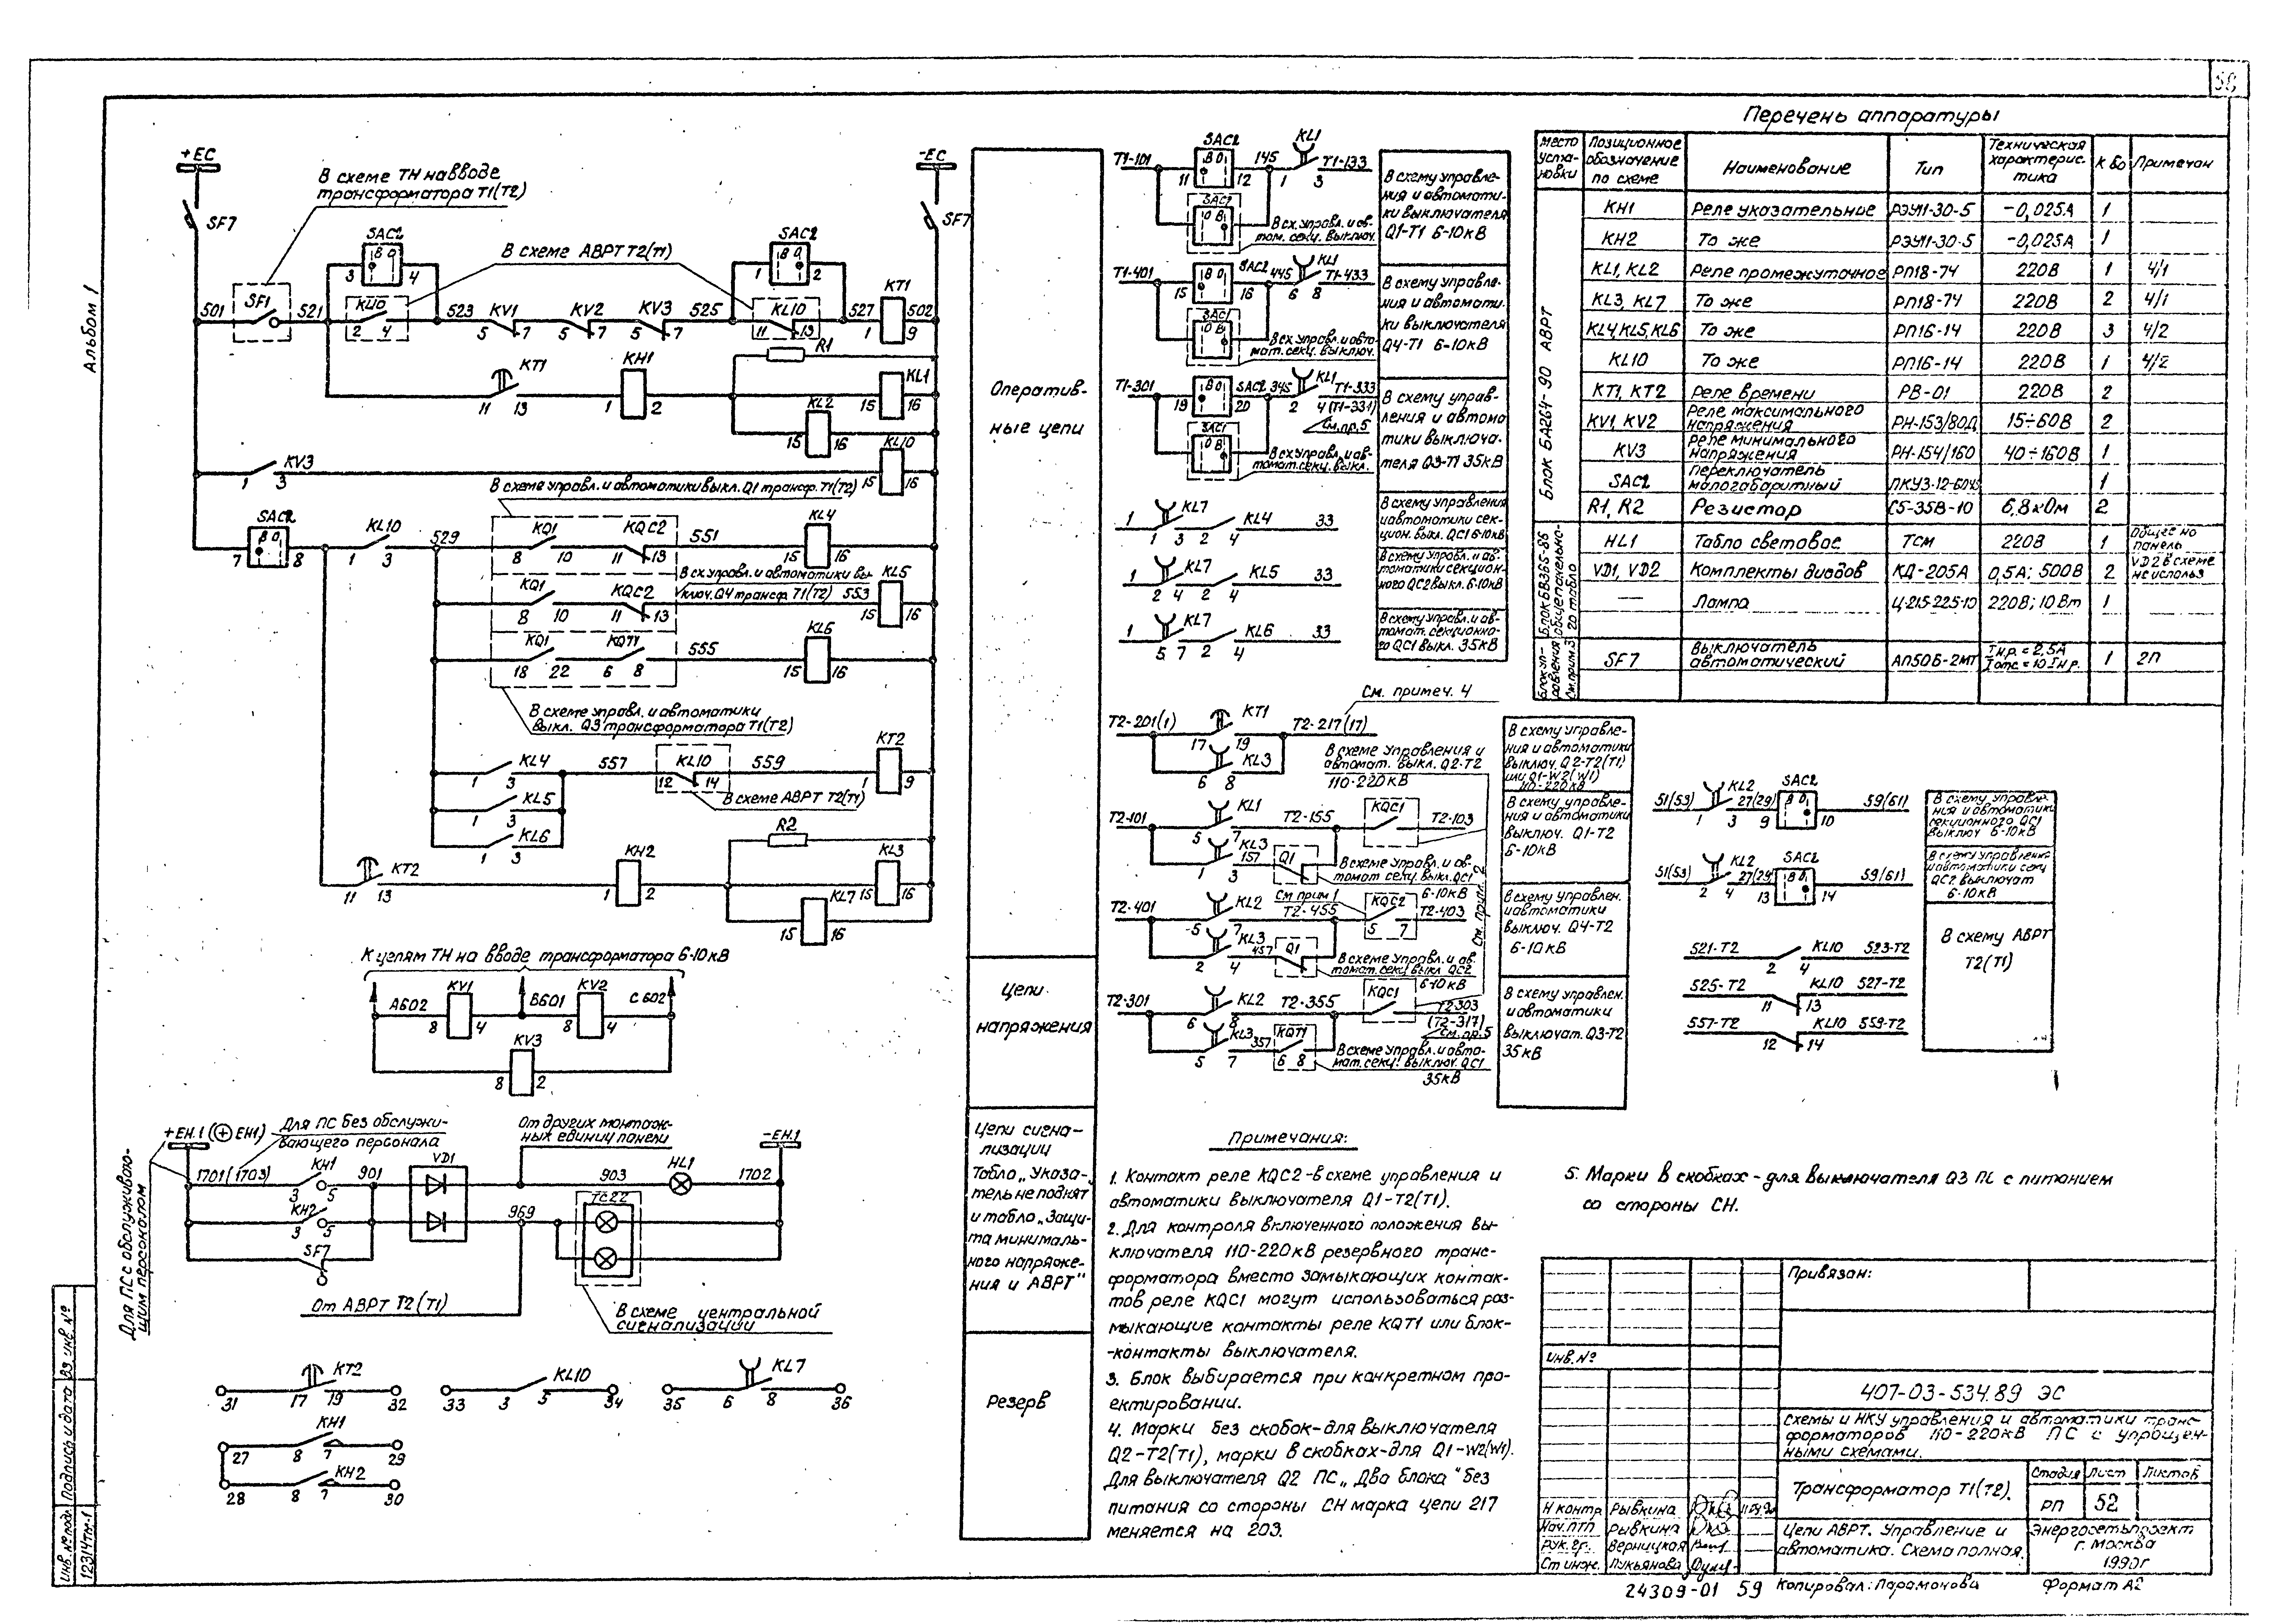 Альбом 1
+ЕС
-ЕС
В схеме ТН на вводе
трансформатора Т1(Т2)
SF7
SF7
SAC2
В О
3
4
В схеме АВРТ Т2(Т1)
SAC2
В О
1
2
501
SF1
521
KL10
2 4
523
KV1
5 7
KV2
5 7
KV3
5 7
525
KL10
11 13
527
KT1
502
1
9
R1
KT1
11 13
KH1
1 2
KL1
15 16
KL2
15 16
KV3
1 3
KL10
15 16
В схеме управл. и автоматики выкл. Q1 трансф. Т1(Т2)
SAC2
В О
7
8
KL10
1 3
529
KQ1
8 10
KQC2
11 13
551
KL4
15 16
KQ1
8 10
KQC2
11 13
В сх. управл. и автоматики вы-
ключ. Q4 трансф. Т1(Т2) 553
KL5
15 16
KQ1
18 22
KQT1
6 8
555
KL6
15 16
В схеме управл. и автоматики
выкл. Q3 трансформатора Т1(Т2)
KL4
1 3
557
KL10
12 14
559
KT2
1 9
KL5
1 3
В схеме АВРТ Т2(Т1)
KL6
1 3
R2
KT2
11 13
KH2
1 2
KL3
15 16
KL7
15 16
К цепям ТН на вводе трансформатора 6-10кВ
А602
KV1
8 4
В601
KV2
8 4
С602
KV3
8 2
+ЕН.1 (⊕ ЕН1)
Для ПС без обслужи-
вающего персонала
От других монтаж-
ных единиц панели
-ЕН.1
Для ПС с обслуживаю-
щим персоналом
1701(1703)
KH1
3 5
901
VD1
903
HL1
1702
KH2
3 5
969
ТС22
SF7
От АВРТ Т2(Т1)
В схеме центральной
сигнализации
31
17 19
KT2
32
33
3 5
KL10
34
35
6 8
KL7
36
27
8 7
KH1
29
28
8 7
KH2
30
Оператив-
ные цепи
Цепи
напряжения
Цепи сигна-
лизации
Табло „Указа-
тель не поднят
и табло „Защи-
та минималь-
ного напряже-
ния и АВРТ"
Резерв
Т1-101
SAC2
В О
11 12
145
KL1
1 3
Т1-133
SAC1
О В
В сх. управл. и ав-
том. секц. выключ.
В схему управле-
ния и автомати-
ки выключателя
Q1-Т1 6-10кВ
Т1-401
В О
15 16
SAC2
445
KL1
6 8
Т1-433
SAC1
О В
В сх. управл. и авто-
мат. секц. выключ.
В схему управле-
ния и автомати-
ки выключателя
Q4-Т1 6-10кВ
Т1-301
В О
19 20
SAC2
345
KL1
2 4
Т1-333
(Т1-331)
См.пр.5
SAC1
О В
В сх. управл. и ав-
томат. секц. выкл.
В схему управ-
ления и автома
тики выключа-
теля Q3-Т1 35кВ
1
KL7
1 3
2 4
KL4
33
В схему управления
и автоматики сек-
цион. выкл. QC1 6-10кВ
1
KL7
2 4
2 4
KL5
33
В схему управл. и ав-
томатики секцион-
ного QC2 выкл. 6-10кВ
1
KL7
5 7
2 4
KL6
33
В схему управл. и ав-
томат. секционно-
го QC1 выкл. 35кВ
См. примеч. 4
Т2-201(1)
KT1
17 19
Т2-217(17)
KL3
6 8
В схеме управления и
автомат. выкл. Q2-Т2
110-220кВ
В схему управле-
ния и автоматики
выключ. Q2-Т2(Т1)
или Q1-W2(W1)
110-220кВ
Т2-101
KL1
5 7
Т2-155
KQC1
Т2-103
KL3
1 3
157
Q1
В схеме управл. и ав-
томат. секц. выкл. QC1
6-10кВ
В схему управле-
ния и автоматики
выключ. Q1-Т2
6-10кВ
Т2-401
KL2
5 7
См прим 1
Т2-455
KQC2
5 7
Т2-403
См. прим. 2
KL3
2 4
457
Q1
В схеме управл. и ав
томат. секц выкл QC2
6-10кВ
В схему управлен.
и автоматики
выключ. Q4-Т2
6-10кВ
Т2-301
KL2
6 8
Т2-355
KQC1
Т2-303
(Т2-317)
См. пр.5
KL3
5 7
357
KQT1
6 8
В схеме управл. и авто-
мат. секц. выключ. QC1
35кВ
В схему управлен.
и автоматики
выключат. Q3-Т2
35кВ
51(53)
KL2
1 3
27(29)
SAC2
В О
9 10
59(61)
В схему управле-
ния и автоматики
секционного QC1
выключ 6-10кВ
51(53)
KL2
2 4
27(29)
SAC2
В О
13 14
59(61)
В схему управления
и автоматики секц
QC2 выключат
6-10кВ
521-Т2
2 4
KL10
523-Т2
525-Т2
11 13
KL10
527-Т2
557-Т2
12 14
KL10
559-Т2
В схему АВРТ
Т2(Т1)
Перечень аппаратуры
Место уста-новки
Позиционное обозначение по схеме
Наименование
Тип
Техническая характерис.тика
К во
Примечан
Блок БА264-90 АВРТ
KH1 Реле указательное РЭУ11-30-5 -0,025А 1
KH2 То же РЭУ11-30-5 -0,025А 1
KL1, KL2 Реле промежуточное РП18-74 220В 1 4/1
KL3, KL7 То же РП18-74 220В 2 4/1
KL4,KL5,KL6 То же РП16-14 220В 3 4/2
KL10 То же РП16-14 220В 1 4/2
KT1, KT2 Реле времени РВ-01 220В 2
KV1, KV2 Реле максимального напряжения РН-153/60Д 15÷60В 2
KV3 Реле минимального напряжения РН-154/160 40÷160В 1
SAC2 Переключатель малогабаритный 1
R1, R2 Резистор С5-35В-10 6,8кОм 2
HL1 Табло световое ТСМ 220В 1 Общее на панель
VD1, VD2 Комплекты диодов КД-205А 0,5А; 500В 2 VD2 в схеме не использ
— Лампа Ц-215-225-10 220В; 10Вт 1
Блок БВ365-86 общепанельно- 20 табло
SF7 Выключатель автоматический АП50Б-2МТ Iн.р.=2,5А Iотс=10Iн.р. 1 2П
Блок уп-равления См.прим.3
Примечания:
1. Контакт реле KQC2-в схеме управления и
автоматики выключателя Q1-Т2(Т1).
2. Для контроля включенного положения вы-
ключателя 110-220кВ резервного транс-
форматора вместо замыкающих контак-
тов реле KQC1 могут использоваться раз-
мыкающие контакты реле KQT1 или блок-
-контакты выключателя.
3. Блок выбирается при конкретном про-
ектировании.
4. Марки без скобок-для выключателя
Q2-Т2(Т1), марки в скобках-для Q1-W2(W1).
Для выключателя Q2 ПС „Два блока" без
питания со стороны СН марка цепи 217
меняется на 203.
5. Марки в скобках-для выключателя Q3 ПС с питанием
со стороны СН.
Привязан:
Инв.№
407-03-534.89 ЭС
Схемы и НКУ управления и автоматики транс-
форматоров 110-220кВ ПС с упрощен-
ными схемами.
Трансформатор Т1(Т2).
Стадия Лист Листов
РП 52
Цепи АВРТ. Управление и
автоматика. Схема полная.
Энергосетьпроект
г. Москва
1990г
Н контр Рывкина
Нач.ПТП Рывкина
Рук.гр. Верницкая
Ст инж. Лукьянова
24309-01 59
Копировал: Парамонова
Формат А2
Инв № подл. Подпись и дата Вз инв №
12314тм-1